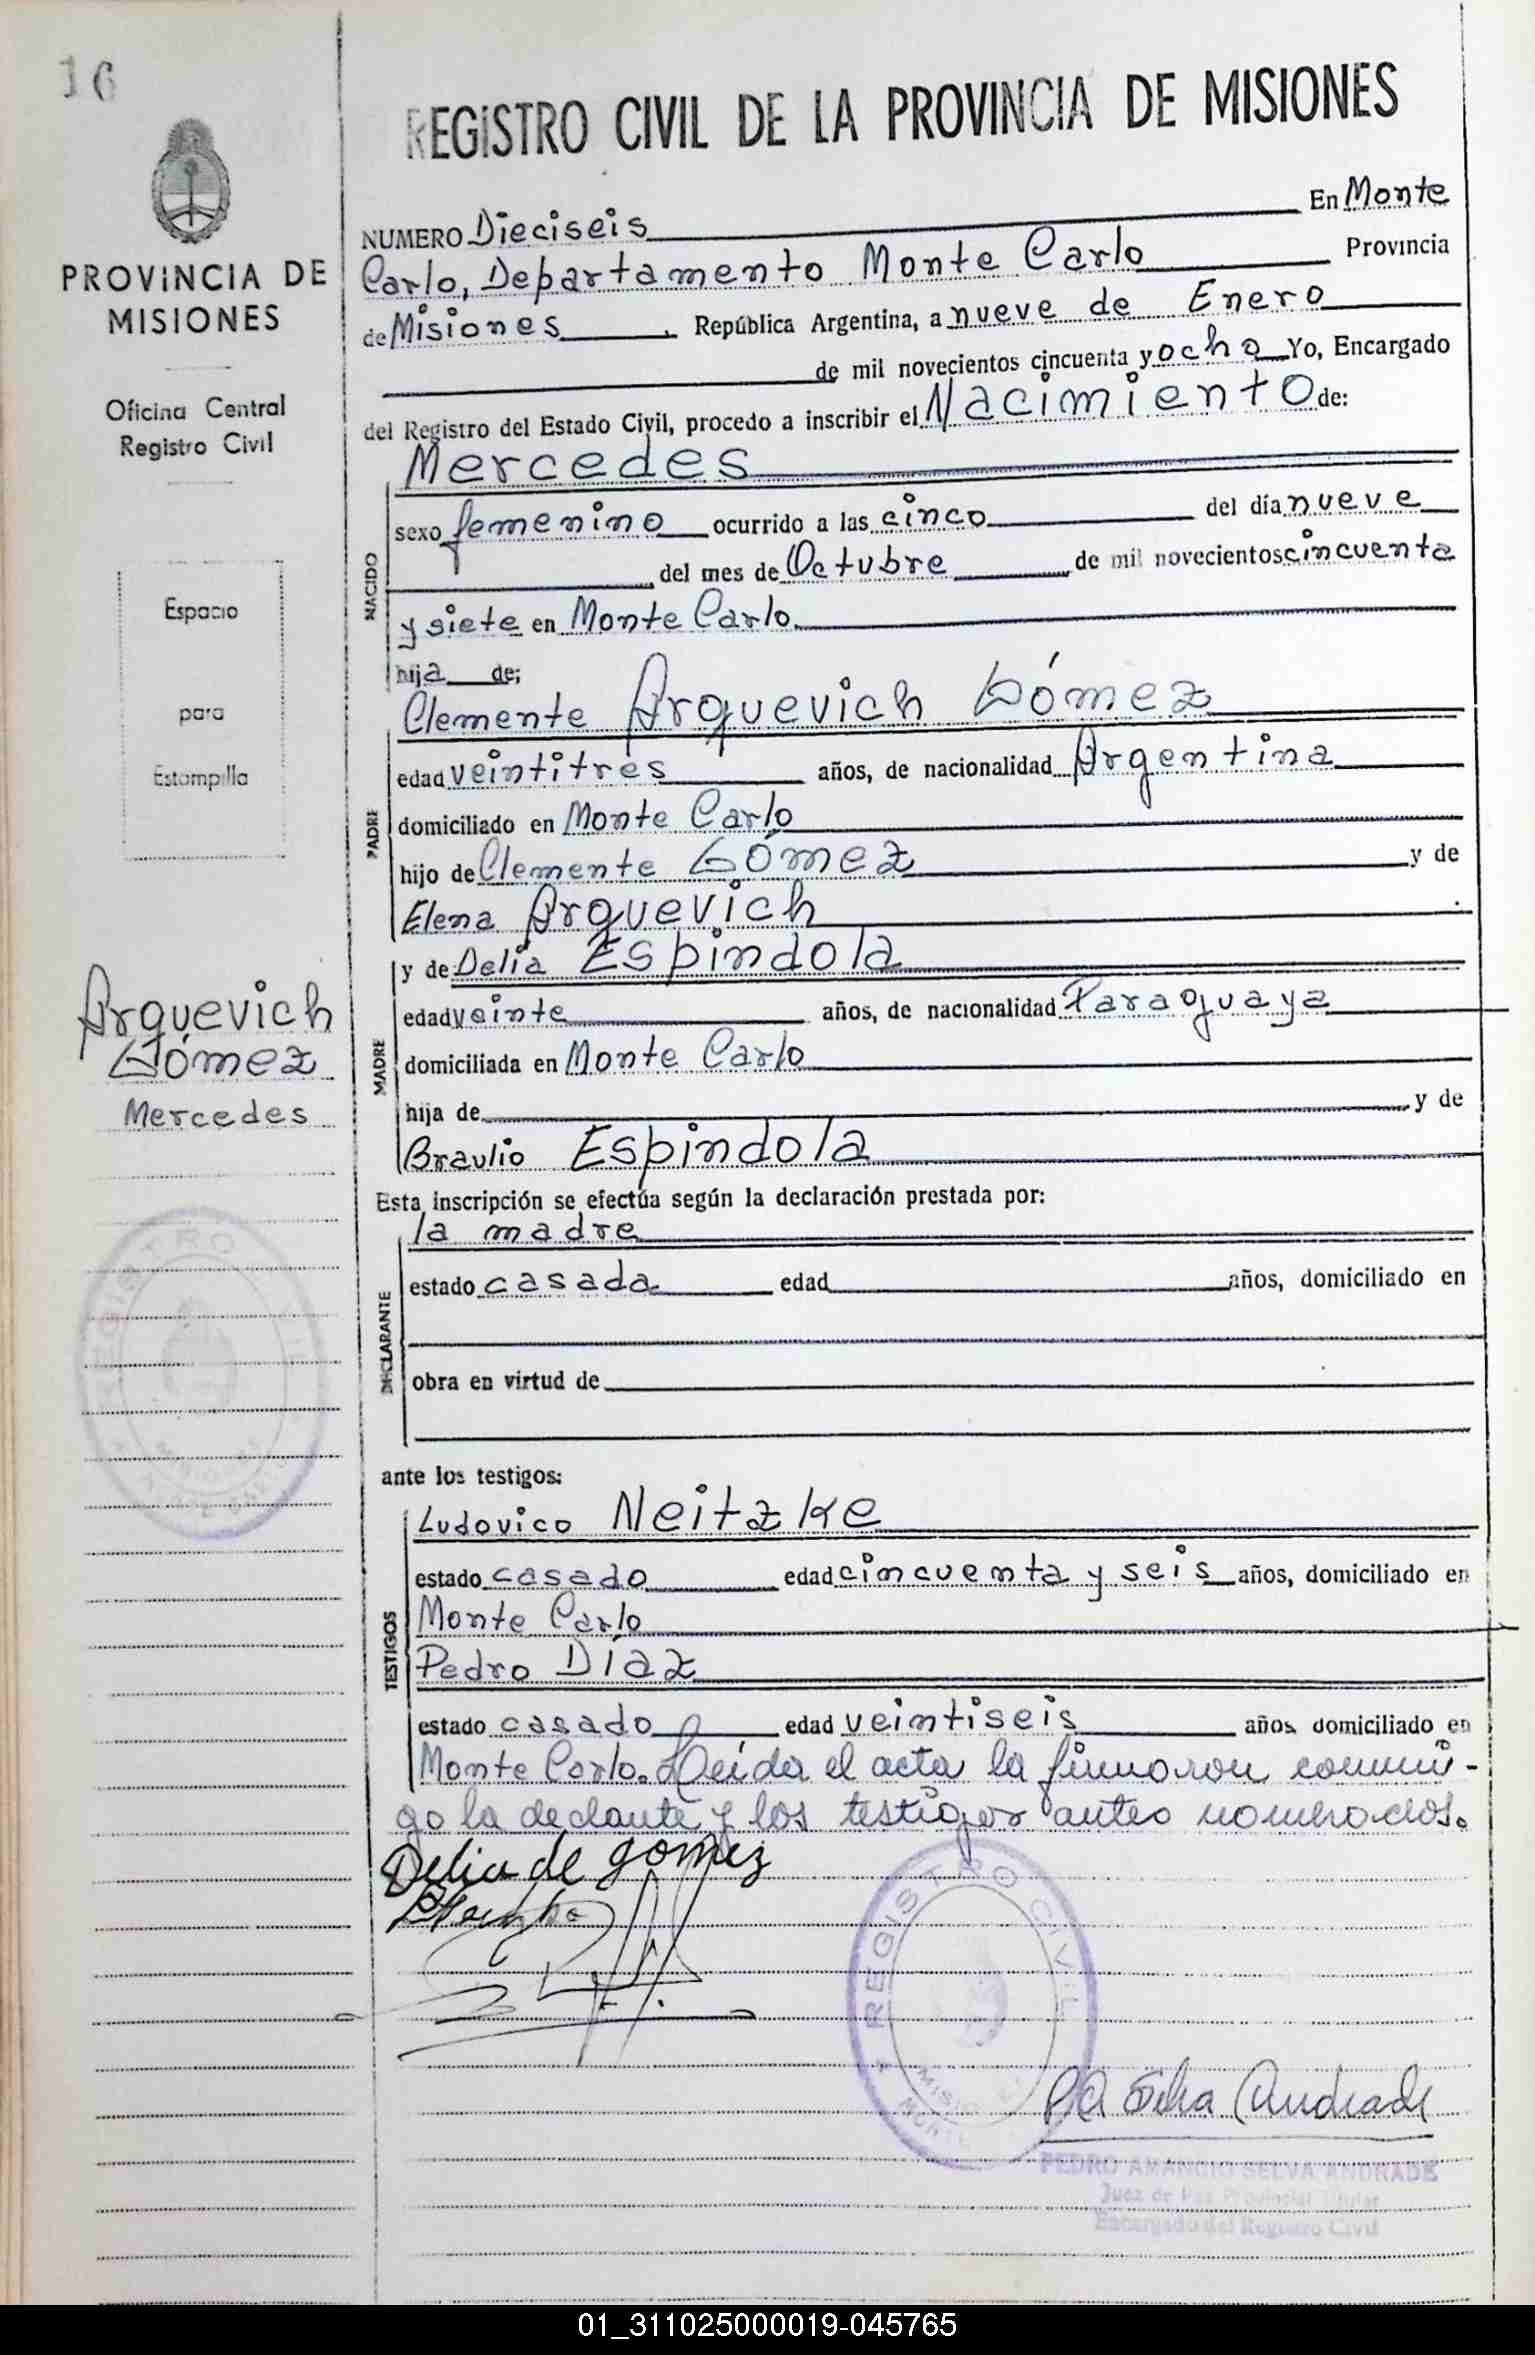 16
REGISTRO CIVIL DE LA PROVINCIA DE MISIONES
PROVINCIA DE
MISIONES
Oficina Central
Registro Civil
Espacio
para
Estampilla
Arquevich
Gómez
Mercedes
NUMERO Dieciseis En Monte
Carlo, Departamento Monte Carlo Provincia
de Misiones, República Argentina, a nueve de Enero
de mil novecientos cincuenta y ocho Yo, Encargado
del Registro del Estado Civil, procedo a inscribir el Nacimiento de:
NACIDO
Mercedes
sexo femenino ocurrido a las cinco del día nueve
del mes de Octubre de mil novecientos cincuenta
y siete en Monte Carlo
hija de;
PADRE
Clemente Arquevich Gómez
edad veintitres años, de nacionalidad Argentina
domiciliado en Monte Carlo
hijo de Clemente Gómez y de
Elena Arquevich
MADRE
y de Delia Espindola
edad veinte años, de nacionalidad Paraguaya
domiciliada en Monte Carlo
hija de y de
Braulio Espindola
Esta inscripción se efectúa según la declaración prestada por:
DECLARANTE
la madre
estado casada edad años, domiciliado en
obra en virtud de
ante los testigos:
TESTIGOS
Ludovico Neitzke
estado casado edad cincuenta y seis años, domiciliado en
Monte Carlo
Pedro Díaz
estado casado edad veintiseis años domiciliado en
Monte Carlo. Leída el acta la firmaron conmi-
go la declante y los testigos antes nombrados.
Delia de gomez
REGISTRO CIVIL
PA Selva Andrade
PEDRO AMANCIO SELVA ANDRADE
Juez de Paz Provincial Titular
Encargado del Registro Civil
01_311025000019-045765